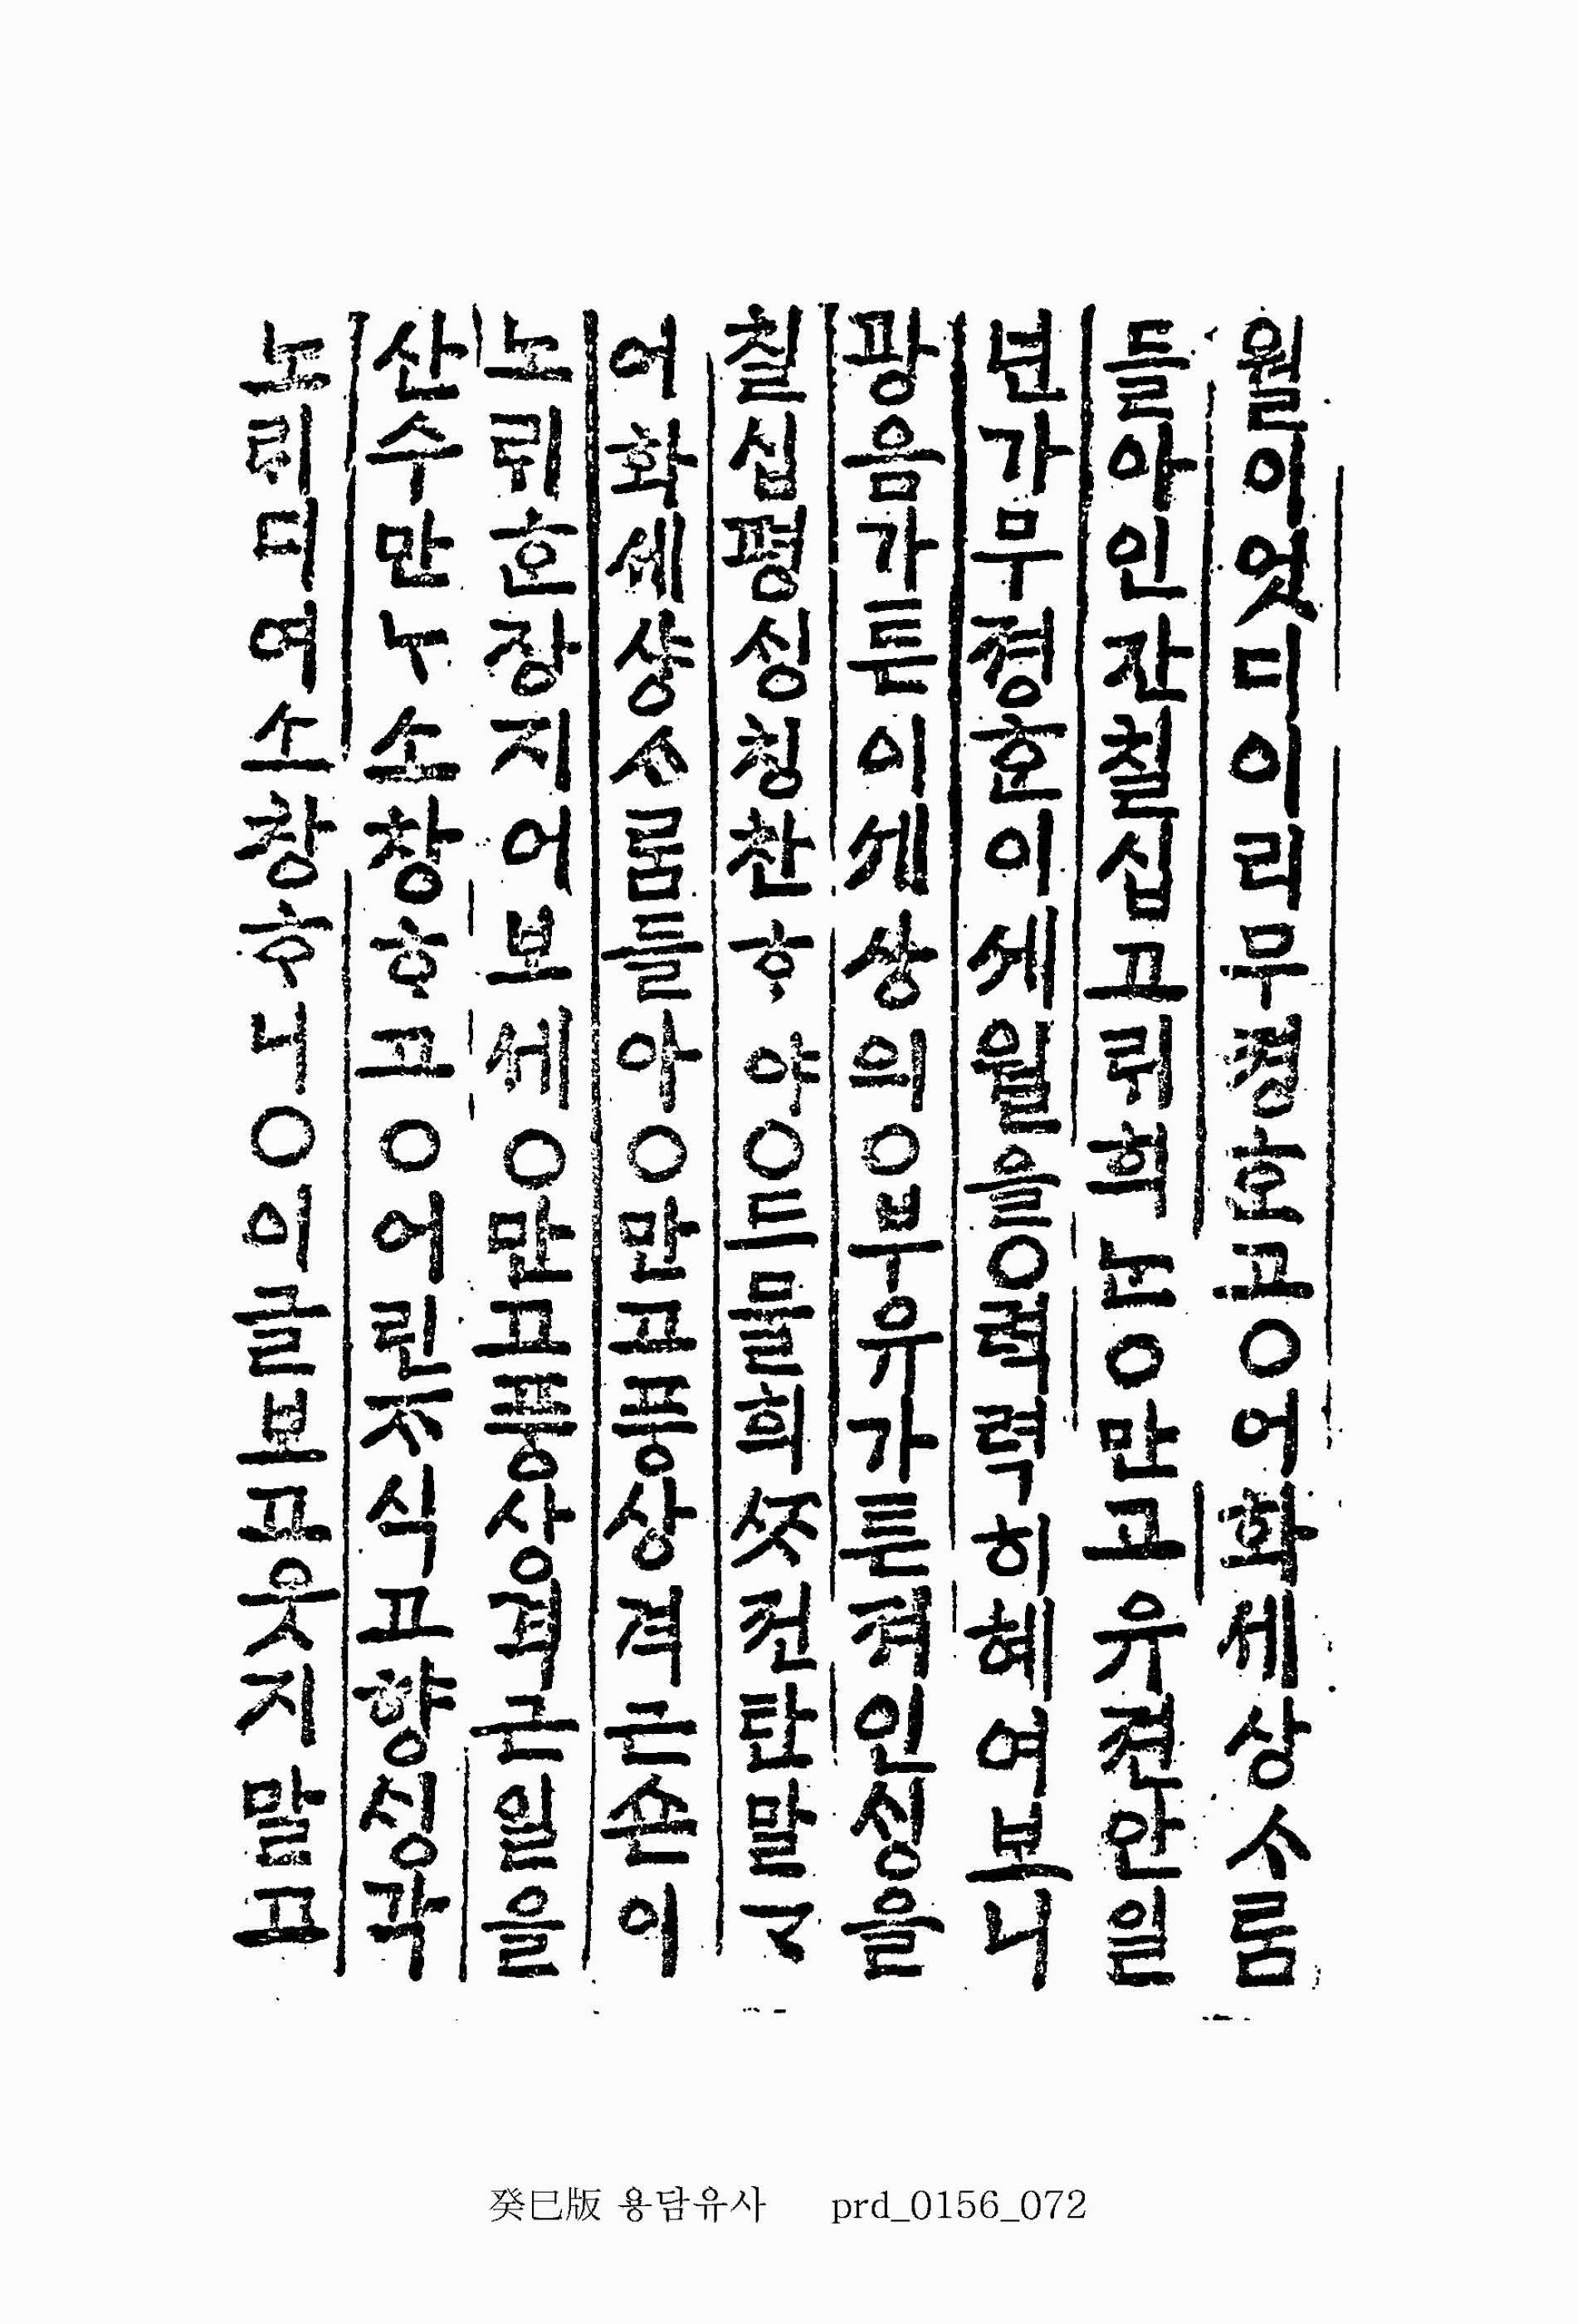 월이엇디이리무졍ᄒᆞ고○어화세상ᄉᆞᄅᆞᆷ
들아인간칠십고ᄅᆡ희ᄂᆞᆫ○만고유젼안일
년가무졍ᄒᆞᆫ이셰월을○력력히혜여보니
광음가튼이셰상의○부유가튼져인ᄉᆡᆼ을
칠십평ᄉᆡᆼ칭찬ᄒᆞ야○드믈희ᄶᆞ젼탄말ᄀᆞ
어화세샹ᄉᆞᄅᆞᆷ들아○만고풍상격근손이
노ᄅᆡᄒᆞᆫ장지어보세○만고풍상격근일을
산수만ᄂᆞ소창ᄒᆞ고○어린ᄌᆞ식고향ᄉᆡᆼ각
노ᄅᆡ디여소창ᄒᆞ니○이글보고웃지말고
癸巳版 용담유사 prd_0156_072